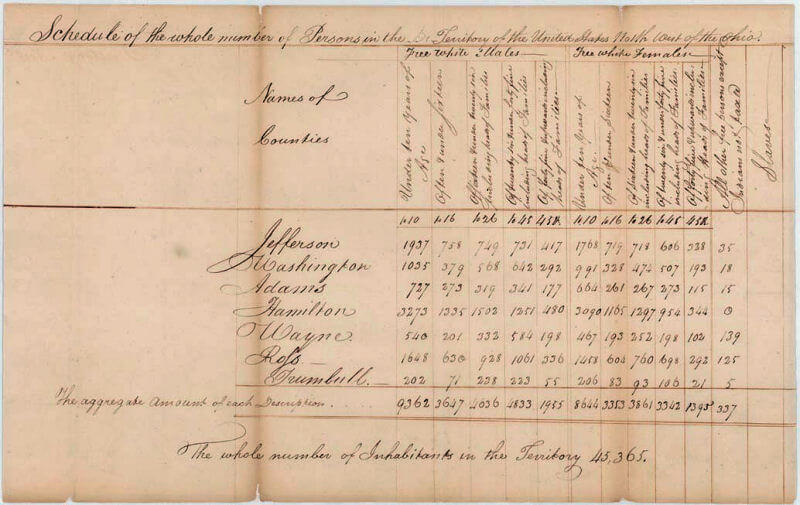 Schedule of the whole number of Persons in the Territory of the United States North West of the Ohio.
Free White Males Free white Females
Names of
Counties
Under ten years of Age
Of ten & under Sixteen
Of sixteen & under twenty six including heads of Families
Of twenty six & under forty five including heads of Families
Of forty five & upwards including heads of Families
Under ten years of Age
Of ten & under Sixteen
Of Sixteen & under twenty six including heads of Families
Of twenty six & under forty five including heads of Families
Of forty five & upwards including Heads of Families
All other free persons except Indians not taxed
Slaves
to 10 to 16 to 26 to 45 45& to 10 to 16 to 26 to 45 45&
Jefferson 1937 758 749 731 417 1768 719 718 606 328 35
Washington 1035 379 568 642 292 991 328 474 507 193 18
Adams 727 273 319 341 177 664 261 267 273 115 15
Hamilton 3273 1335 1502 1251 480 3090 1165 1297 954 344 0
Wayne 540 201 332 584 198 467 193 252 198 102 139
Ross 1648 630 928 1061 336 1458 604 760 698 292 125
Trumbull 202 71 238 223 55 206 83 93 106 21 5
The aggregate amount of each Description 9362 3647 4636 4833 1955 8644 3353 3861 3342 1395 337
The whole number of Inhabitants in the Territory 45,365.